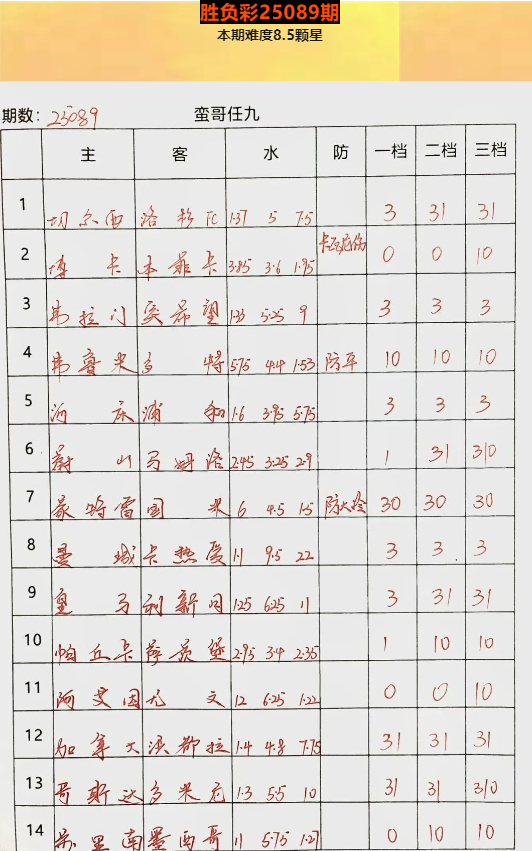 胜负彩25089期
本期难度8.5颗星
期数: 25089 蛮哥任九
主 客 水 防 一档 二档 三档
1 切尔西 洛杉FC 1.37 5 7.5 3 31 31
2 博卡 本菲卡 3.85 3.6 1.95 0 0 10
3 弗拉门 突希望 1.33 5.25 9 3 3 3
4 弗鲁米 多特 5.75 4.4 1.53 防平 10 10 10
5 河床 浦和 1.6 3.95 5.75 3 3 3
6 蔚山 马姆洛 2.45 3.25 2.9 1 31 310
7 蒙特雷 国米 6 4.5 1.5 防大冷 30 30 30
8 曼城 卡热爱 1.1 9.5 22 3 3 3
9 皇马 利新月 1.25 6.25 11 3 31 31
10 帕丘卡 萨茨堡 2.95 3.4 2.35 1 10 10
11 阿艾因 尤文 12 6.25 1.22 0 0 10
12 加拿大 洪都拉 1.4 4.8 7.75 31 31 31
13 哥斯达 多米尼 1.3 5.5 10 31 31 310
14 苏里南 墨西哥 11 5.75 1.27 0 10 10